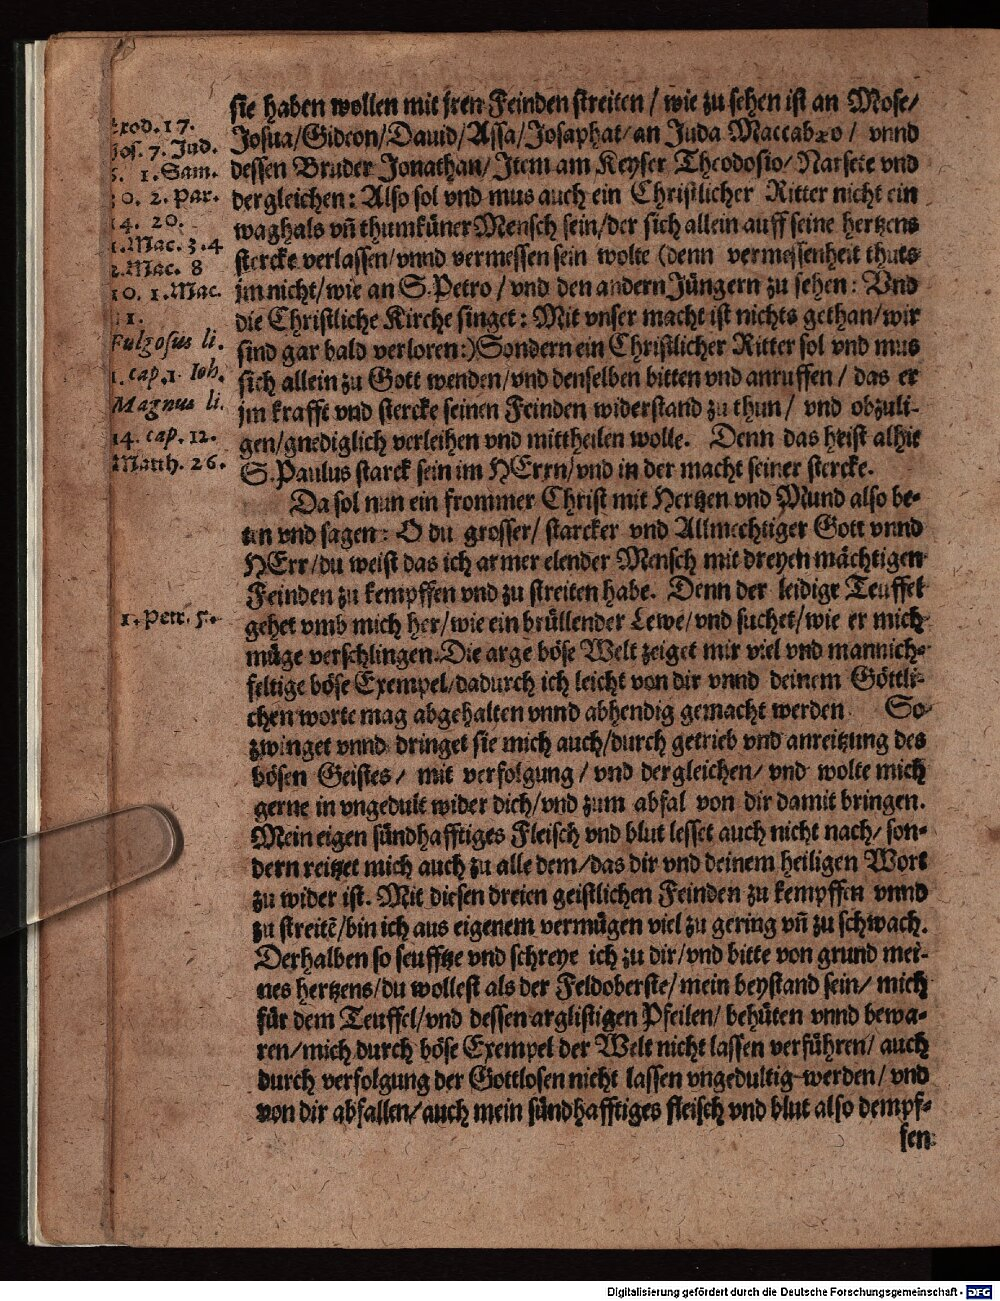 sie haben wollen mit jren Feinden streiten / wie zu sehen ist an Mose/
Josua/Gideon/Dauid/Assa/Josaphat/an Juda Maccabæo / vnnd
dessen Bruder Jonathan/ Jtem am Keyser Theodosio/ Narsete vnd
dergleichen: Also sol vnd mus auch ein Christlicher Ritter nicht ein
waghals vñ thumküner Mensch sein/der sich allein auff seine hertzens
stercke verlassen/vnnd vermessen sein wolte (denn vermessenheit thuts
jm nicht/wie an S.Petro / vnd den andern Jüngern zu sehen: Vnd
die Christliche Kirche singet: Mit vnser macht ist nichts gethan/wir
sind gar bald verloren:) Sondern ein Christlicher Ritter sol vnd mus
sich allein zu Gott wenden/vnd denselben bitten vnd anruffen / das er
jm krafft vnd stercke seinen Feinden widerstand zu thun / vnd obzuli-
gen/gnediglich verleihen vnd mittheilen wolle. Denn das heist alhie
S.Paulus starck sein im HErrn/vnd in der macht seiner stercke.
Da sol nun ein frommer Christ mit Hertzen vnd Mund also be-
ten vnd sagen: O du grosser/ starcker vnd Allmechtiger Gott vnnd
HErr/du weist das ich armer elender Mensch mit dreyen mächtigen
Feinden zu kempffen vnd zu streiten habe. Denn der leidige Teuffel
gehet vmb mich her/wie ein brüllender Lewe/vnd suchet/wie er mich
müge verschlingen. Die arge böse Welt zeiget mir viel vnd mannich-
feltige böse Exempel/dadurch ich leicht von dir vnnd deinem Göttli-
chen worte mag abgehalten vnnd abhendig gemacht werden. So
zwinget vnnd dringet sie mich auch/durch getrieb vnd anreitzung des
bösen Geistes/ mit verfolgung / vnd dergleichen/ vnd wolte mich
gerne in vngedult wider dich/vnd zum abfal von dir damit bringen.
Mein eigen sündhafftiges Fleisch vnd blut lesset auch nicht nach/ son-
dern reitzet mich auch zu alle dem/das dir vnd deinem heiligen Wort
zu wider ist. Mit diesen dreien geistlichen Feinden zu kempffen vnnd
zu streitē/bin ich aus eigenem vermügen viel zu gering vñ zu schwach.
Derhalben so seufftze vnd schreye ich zu dir/vnd bitte von grund mei-
nes hertzens/du wollest als der Feldoberste/ mein beystand sein/ mich
für dem Teuffel/vnd dessen arglistigen Pfeilen/ behüten vnnd bewa-
ren/mich durch böse Exempel der Welt nicht lassen verführen/ auch
durch verfolgung der Gottlosen nicht lassen vngedultig werden/ vnd
von dir abfallen/auch mein sündhafftiges fleisch vnd blut also dempf-
fen
Exod. 17.
Jos. 7. Jud.
1. Sam.
2. Par.
14. 20.
1. Mac. 3.4
2. Mac. 8
10. 1. Mac.
Fulgosus li.
1. cap. 1. Ioh.
Magnus li.
14. cap. 12.
Matth. 26.
1. Petr. 5.
Digitalisierung gefördert durch die Deutsche Forschungsgemeinschaft - DFG